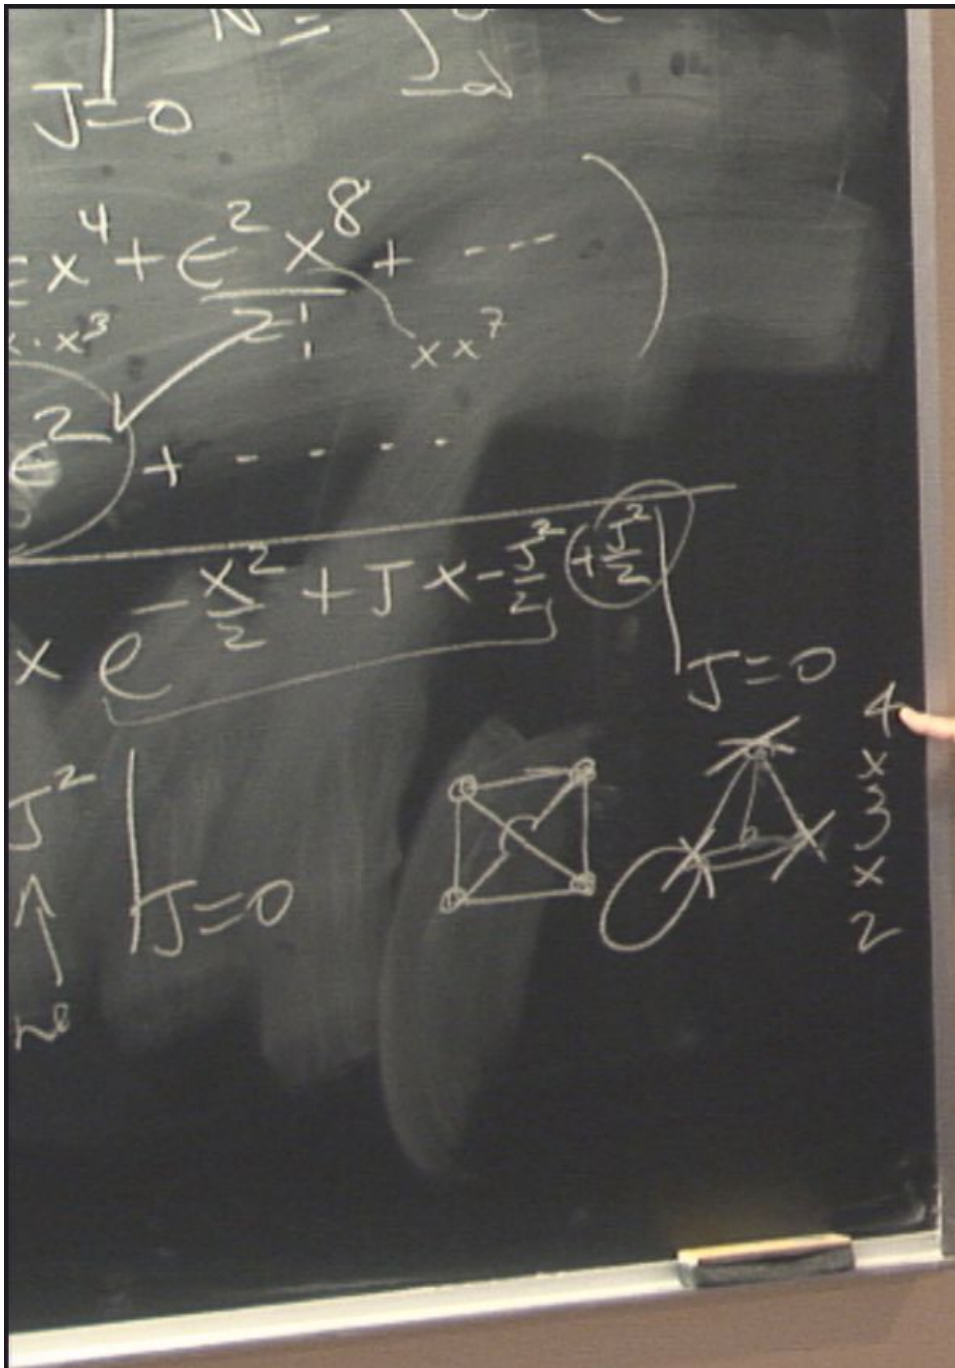 J=0 N =
ϵx⁴ + ϵ²x⁸/2! + ---
x·x³ xx⁷
ϵ² + - - - -
x e^(-x²/2 + Jx - J²/2 + J²/2) |
J=0
J² | J=0
4
x
3
x
2